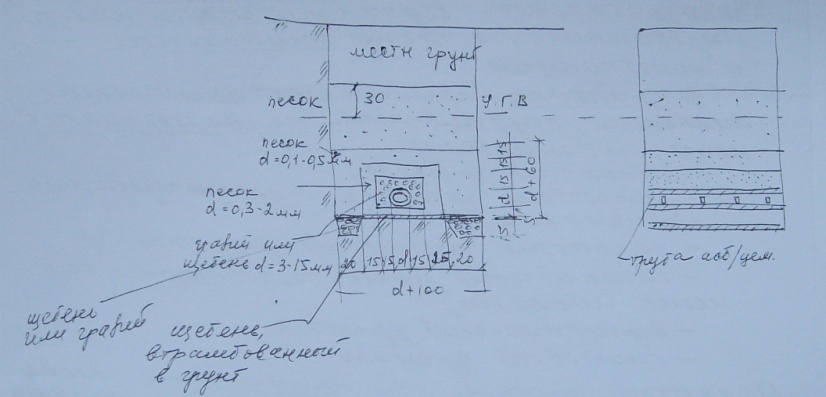 местн грунт
песок
30
У.Г.В
песок
d=0,1-0,5мм
песок
d=0,3-2мм
гравий или
щебень d=3-15мм
20 15 5 d 15 15 20
d+100
15 15 15 d 5
d+60
15
щебень
или гравий
щебень,
втрамбованный
в грунт
труба асб/цем.